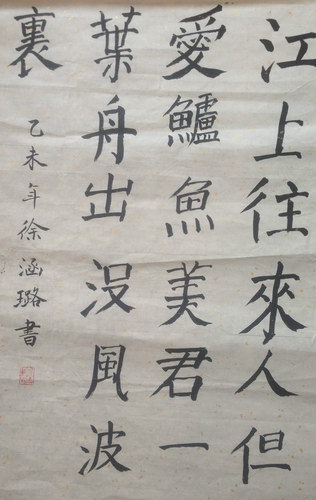 江上往來人但
愛鱸魚美君一
葉舟出没風波
裏
乙未年徐涵璐書